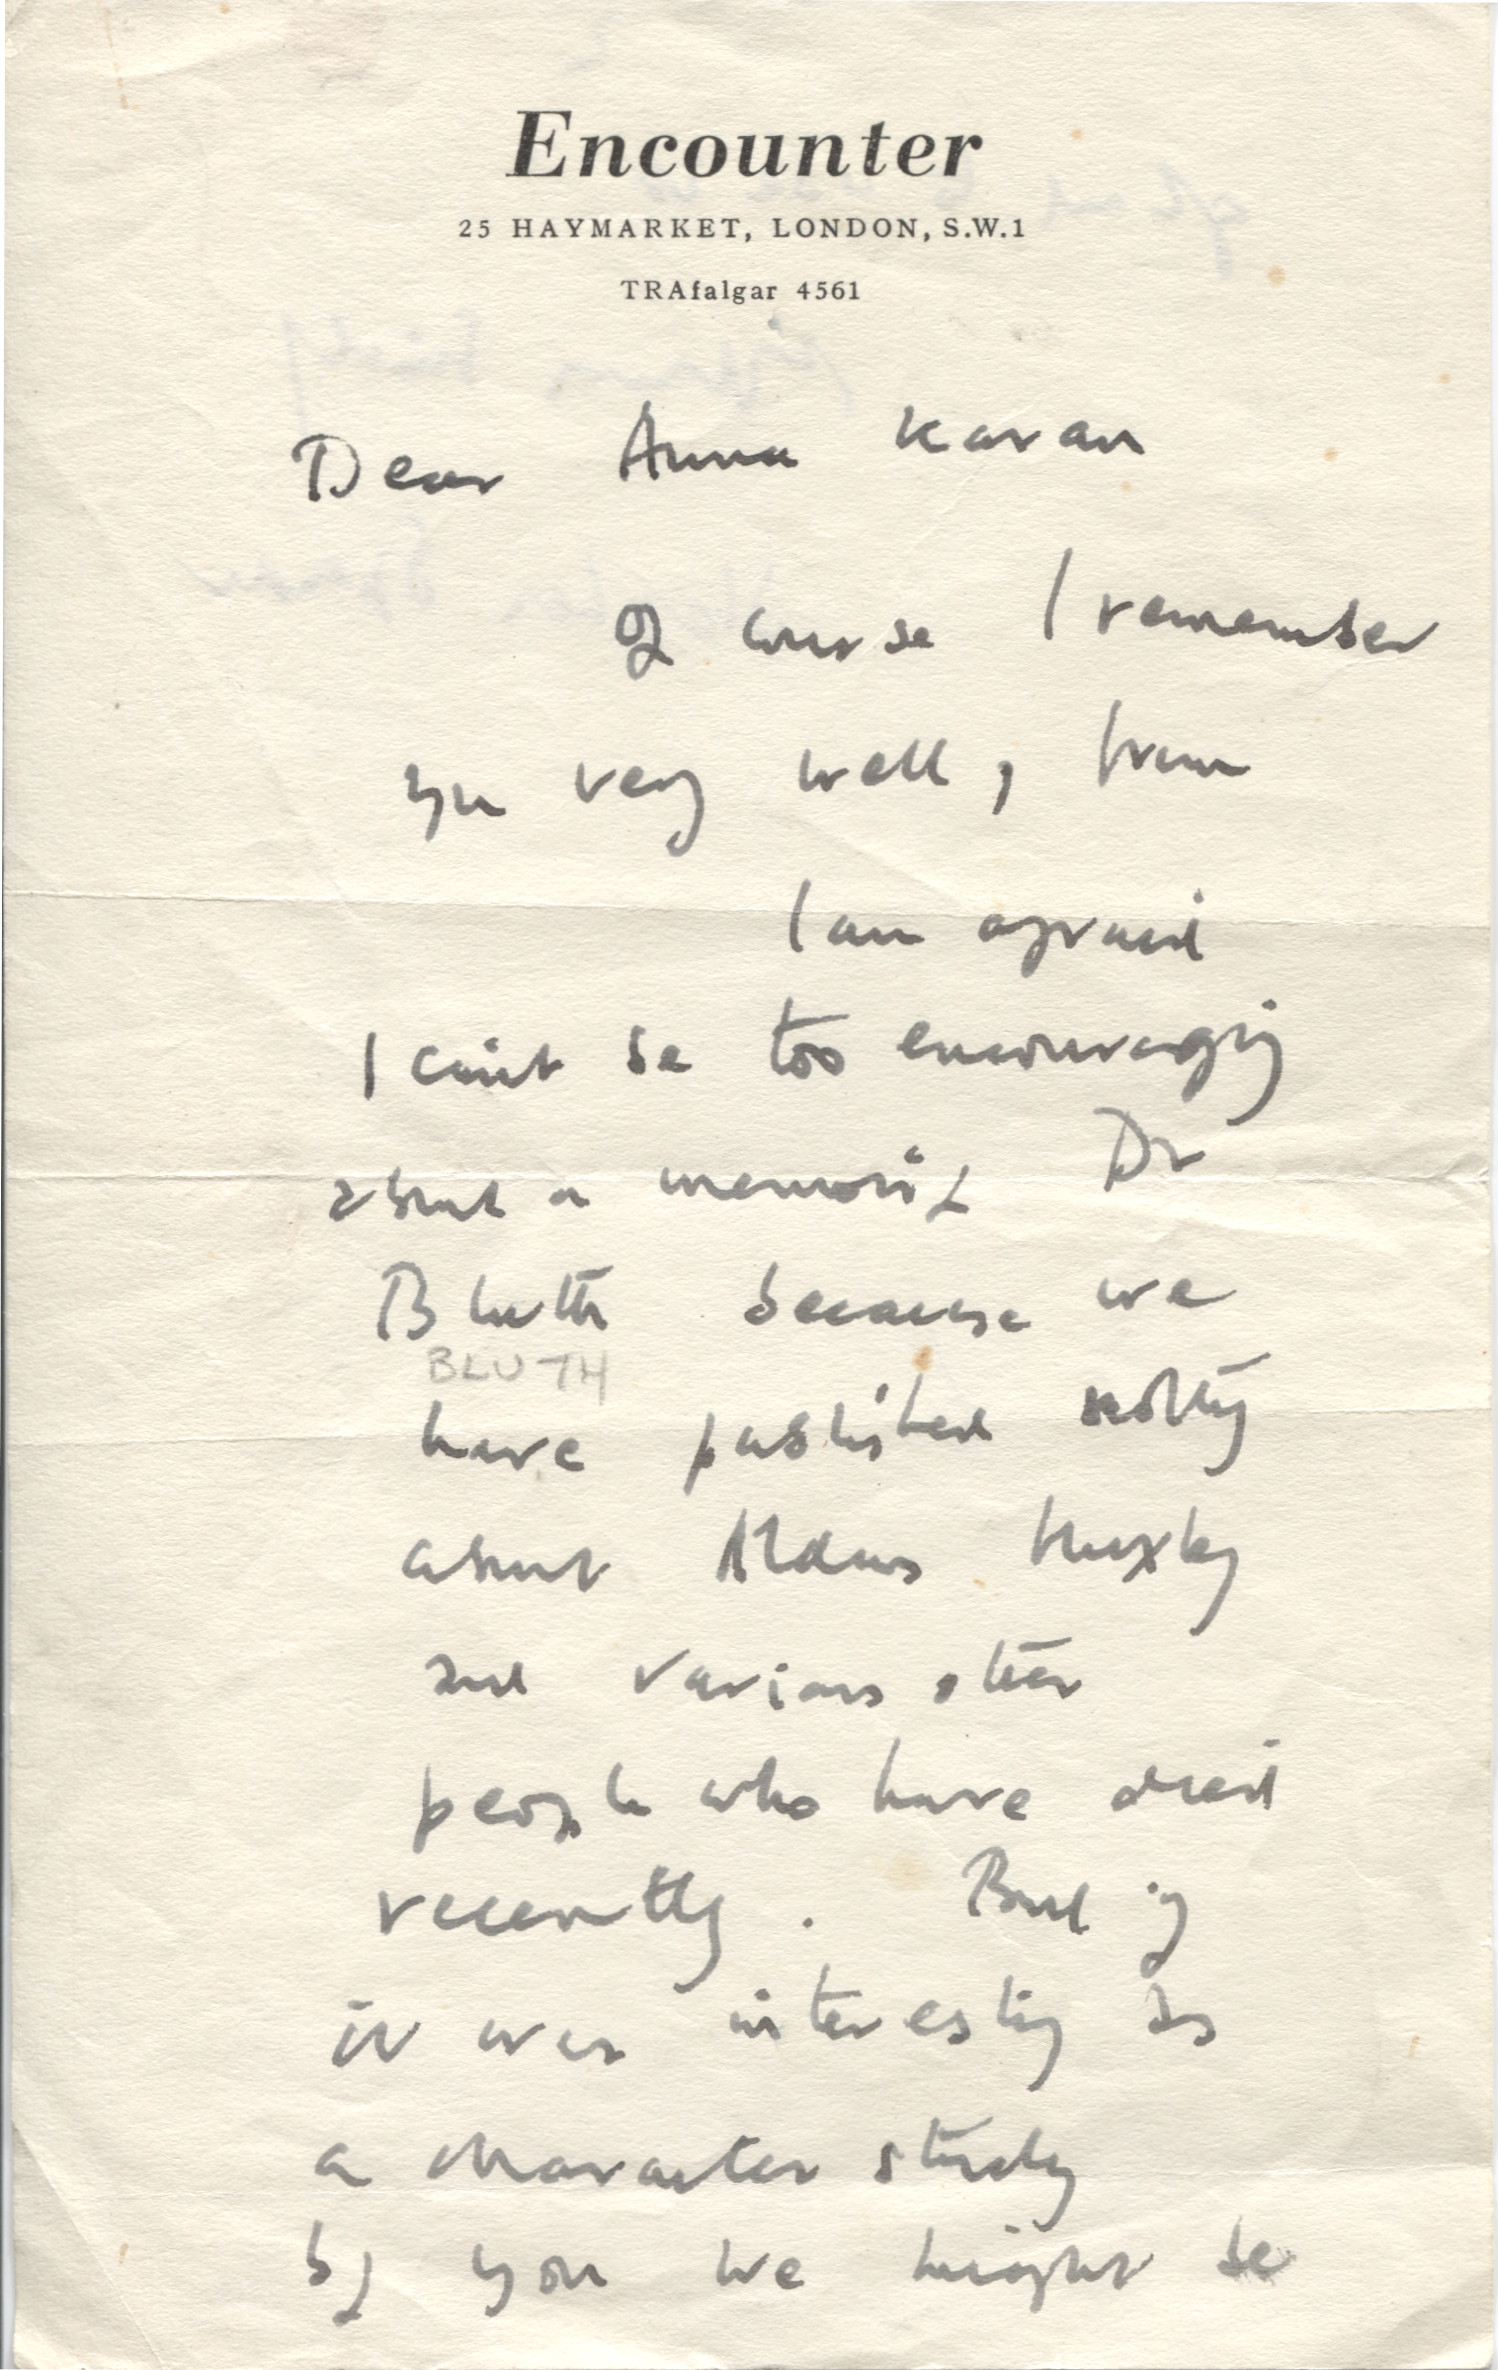 Encounter
25 HAYMARKET, LONDON, S.W.1
TRAfalgar 4561
Dear Anna Kavan
Of course I remember
you very well, from
I am afraid
I can't be too encouraging
about a memoir of Dr
Bluth because we
BLUTH
have published nothing
about Aldous Huxley
and various other
people who have died
recently. But if
it was interesting as
a character study
by you we might be